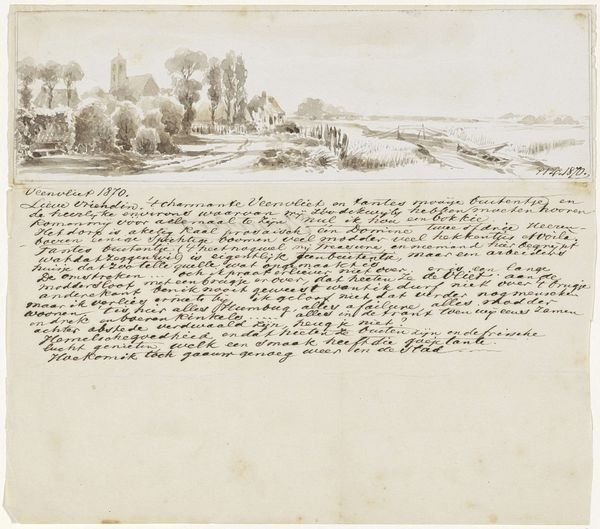 1870.
Veenvliet 1870.
Lieve Vriendin, 't charmante Veenvliet en Tantes mooije buitentje en
de heerlijke environs waarvan wij zoo dikwijls hebben moeten hooren
Komannij voor allemaal te zijn nul ik hou een bokkie
Het dorp is akelig kaal prosaisch één Dominé twee of drie Heeren
boeren eenige spichtige boomen veel modder veel hekkentjes
Tantes buitentje ('t heet nogwel mij Treavine en niemand hier begrijpt
wat dat zeggen wil) is eigenlijk geen buitentje, maar een arbeiders
huisje dat zoo telle quelle wat opgemaakt is
De omstreken och ik praat er liever niet over, er is een lange
moddersloot met een brugje er over, dat heeten ze de Vliet aan de
andere kant ben ik nooit geweest want ik durf niet over 't brugje
maar ik verlies er niets bij ik geloof niet dat verder nog menschen
woonen 't is hier alles Humbug alles a failure alles modder
en drek en boeren kinkels alles in de trant toen wij eens zamen
achter abstede verdwaald zijn heug je niet?
Hemelsche goedheid en dat heeten ze buiten zijn en de frissche
lucht genieten, welk een smaak heeft die goeje tante.
Hoe kom ik toch gaauw genoeg weer in de Stad